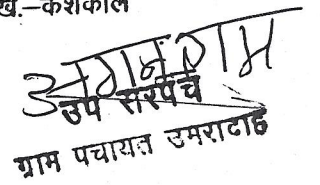 खं.-केशकाल
अगनूराम
उप सरपंच
ग्राम पंचायत उमरादाह